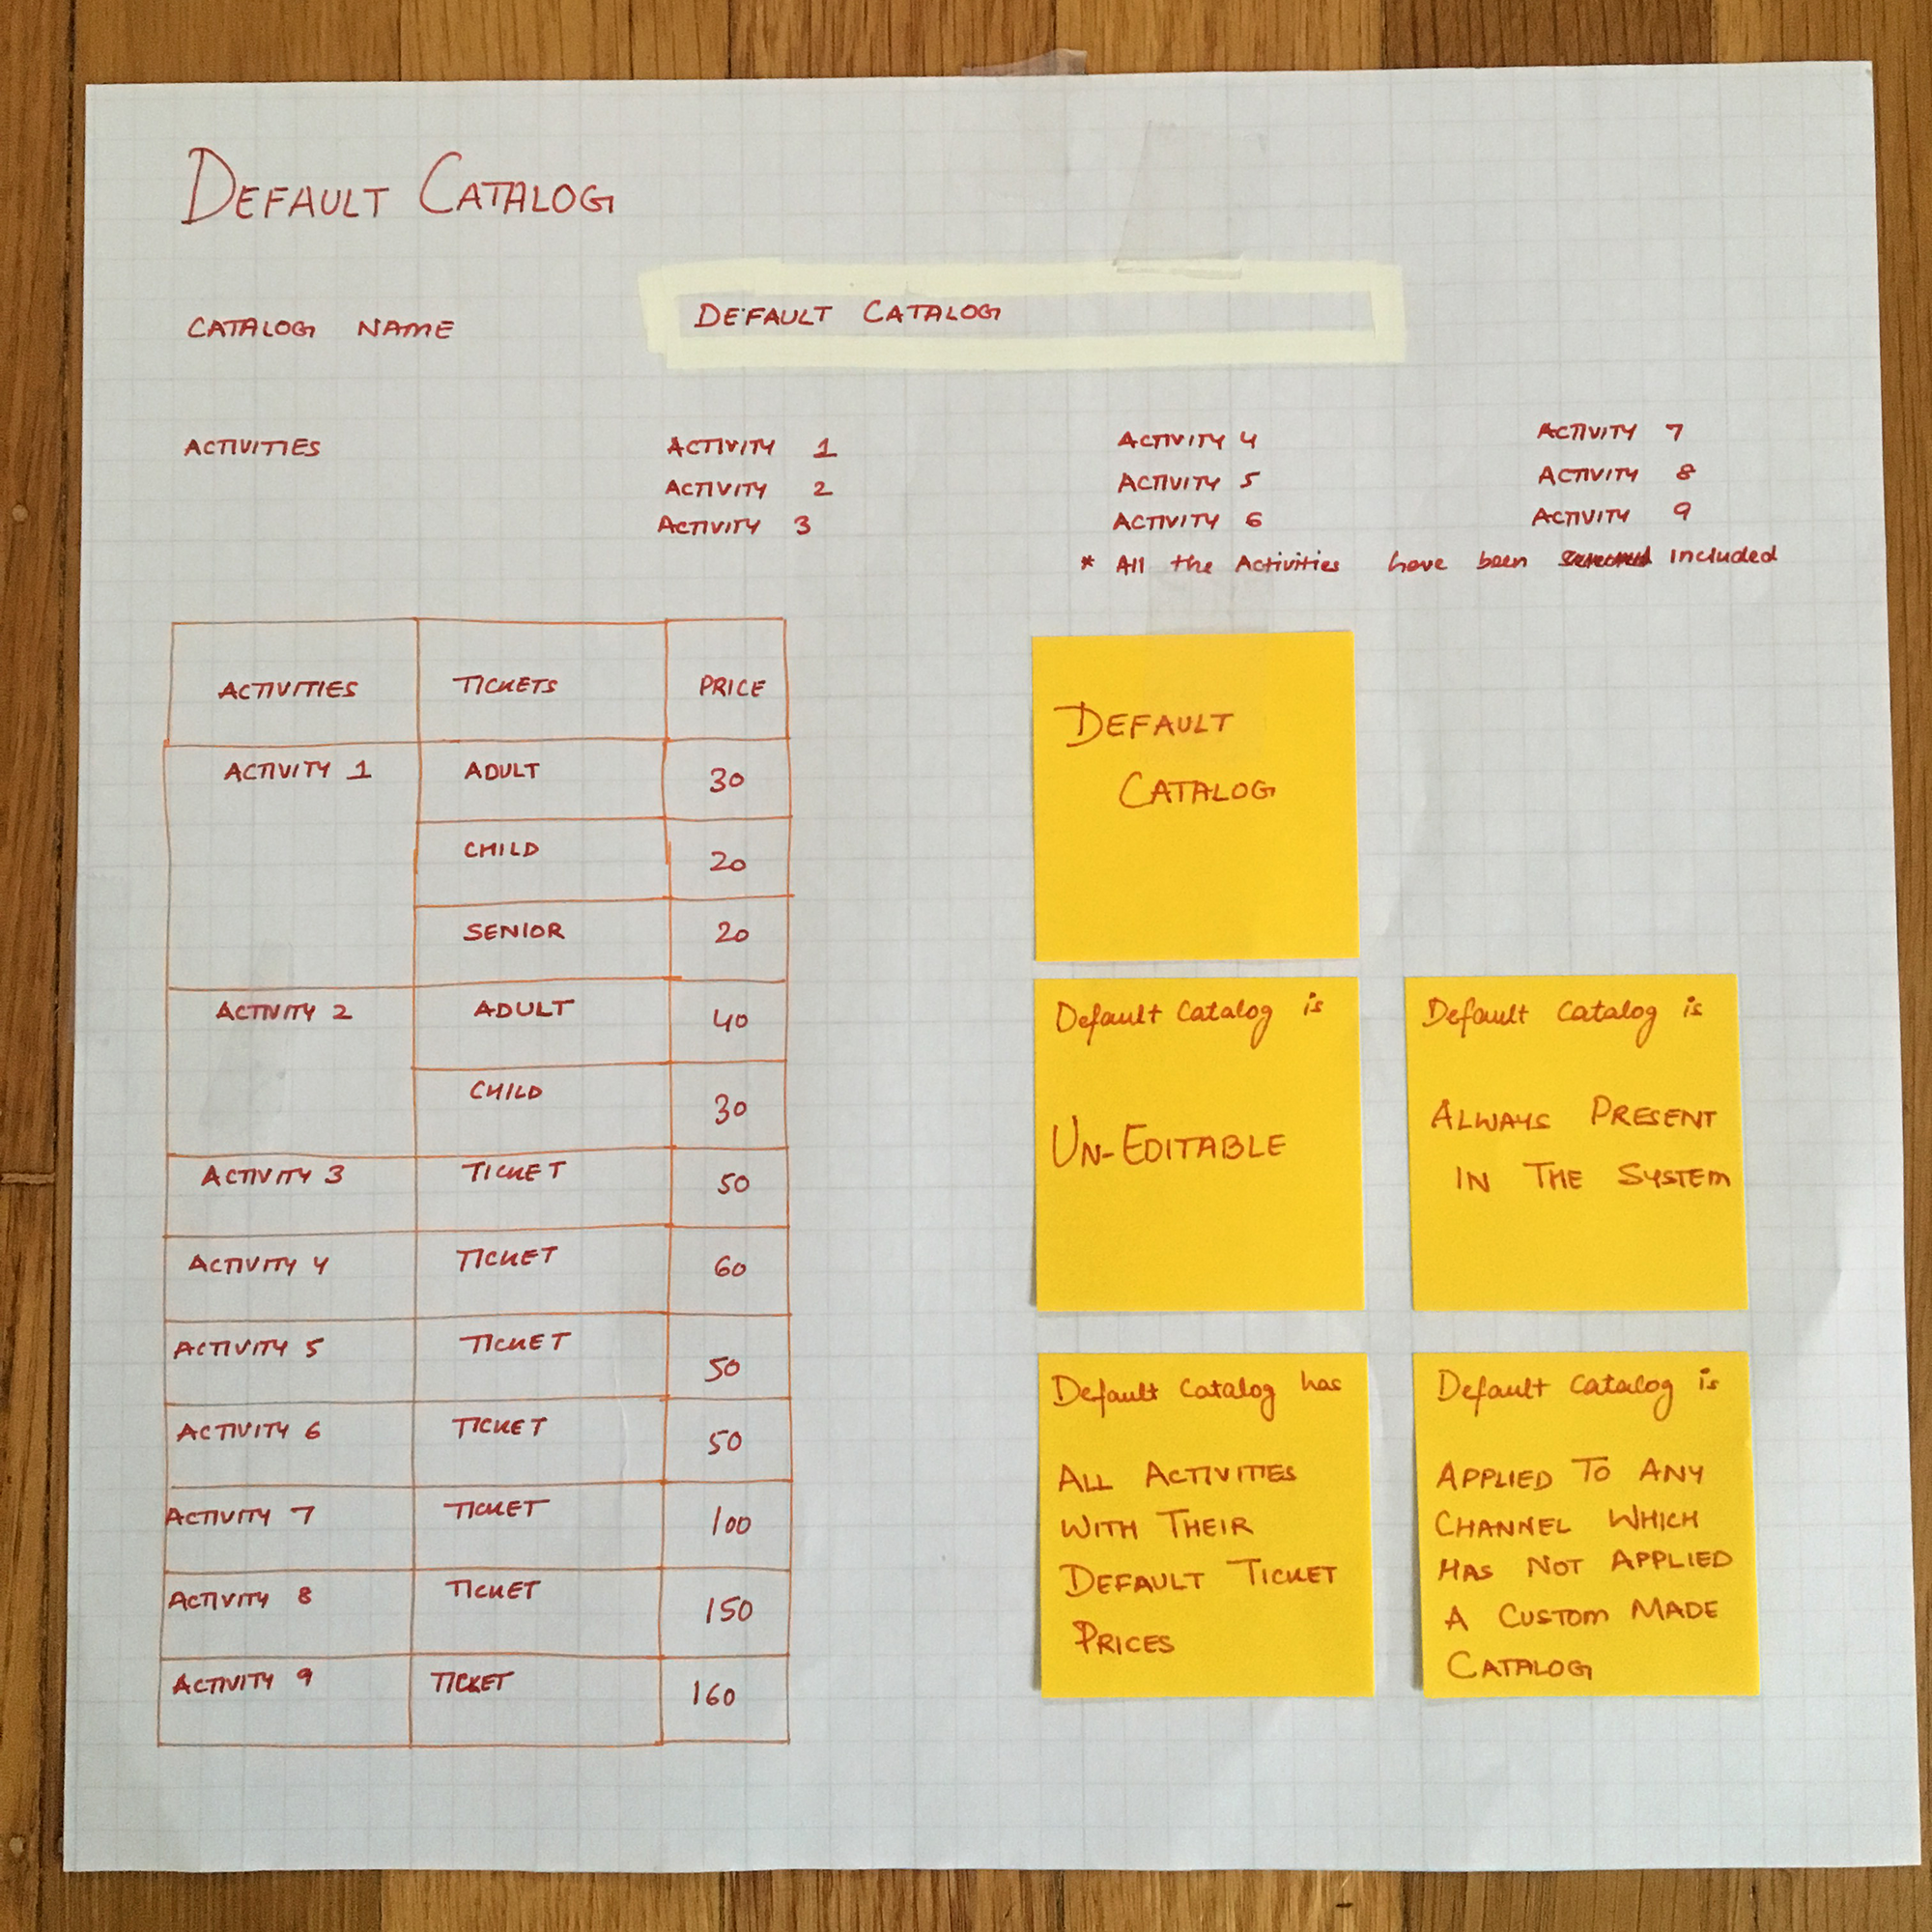 DEFAULT CATALOG
CATALOG NAME
DEFAULT CATALOG
ACTIVITIES
ACTIVITY 1
ACTIVITY 2
ACTIVITY 3
ACTIVITY 4
ACTIVITY 5
ACTIVITY 6
ACTIVITY 7
ACTIVITY 8
ACTIVITY 9
* All the Activities have been included
ACTIVITIES TICKETS PRICE
ACTIVITY 1 ADULT 30
CHILD 20
SENIOR 20
ACTIVITY 2 ADULT 40
CHILD 30
ACTIVITY 3 TICKET 50
ACTIVITY 4 TICKET 60
ACTIVITY 5 TICKET 50
ACTIVITY 6 TICKET 50
ACTIVITY 7 TICKET 100
ACTIVITY 8 TICKET 150
ACTIVITY 9 TICKET 160
DEFAULT
CATALOG
Default Catalog is
UN-EDITABLE
Default Catalog is
ALWAYS PRESENT
IN THE SYSTEM
Default Catalog has
ALL ACTIVITIES
WITH THEIR
DEFAULT TICKET
PRICES
Default Catalog is
APPLIED TO ANY
CHANNEL WHICH
HAS NOT APPLIED
A CUSTOM MADE
CATALOG